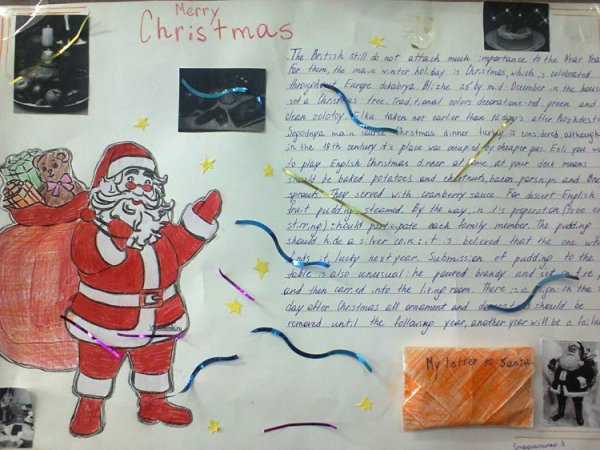 Merry
Christmas
The British still do not attach much importance to the Near Yea
For them, the main winter holiday is Christmas, which is celebrated
throughout Europe dekabrya. Blizhe 25 by mid December in the hous
set a Christmas tree. Traditional colors decorations-red, green and
taken not earlier than 12 day's after Rozhdest
Segodnya main course Christmas dinner turkey is considered, although
in the 18th century it's place was occupied by cheaper gus. Esli, you w
to play English Christmas dinner at home, at your desk means
should be baked potatoes and chestnuts, bacon, parsnips and Bru
sprouts. They served with cranberry sauce. For dessert-English
fruit pudding, steamed. By the way, in it's preparation
stirring) should participate each family member. The pudding
should hide a silver coin: it is believed that the one who
finds it, lucky next year. Submission of pudding to the
table is also unusual: he poured brandy and set
and then carried into the living room. There is a sign: on the
day after Christmas all ornament and decoration should be
removed until the following year, another year will be a failu
My letter to Santa